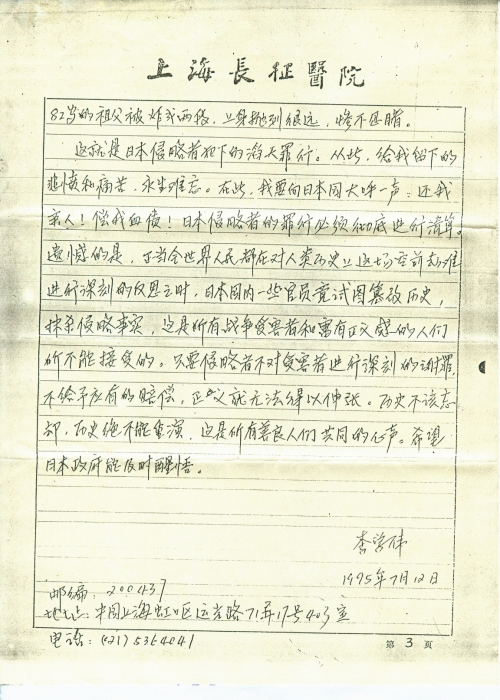 上海長征醫院
82岁的祖父被炸成两段，上身抛到很远，惨不忍睹。
这就是日本侵略者犯下的滔天罪行。从此，给我留下的
悲愤和痛苦，永生难忘。在此，我要向日本国大呼一声：还我
亲人！偿我血债！日本侵略者的罪行必须彻底进行清算。
遗憾的是，正当全世界人民都在对人类历史上这场空前劫难
进行深刻的反思之时，日本国内一些官员竟试图篡改历史，
抹杀侵略事实，这是所有战争受害者和富有正义感的人们
所不能接受的。只要侵略者不对受害者进行深刻的谢罪，
不给予应有的赔偿，正义就无法得以伸张。历史不该忘
却，历史绝不能重演，这是所有善良人们共同的心声。希望
日本政府能及时醒悟。
李学伟
1995年7月12日
邮编：200437
地址：中国上海虹口区运光路71弄17号403室
电话：(021) 5364041
第 3 页